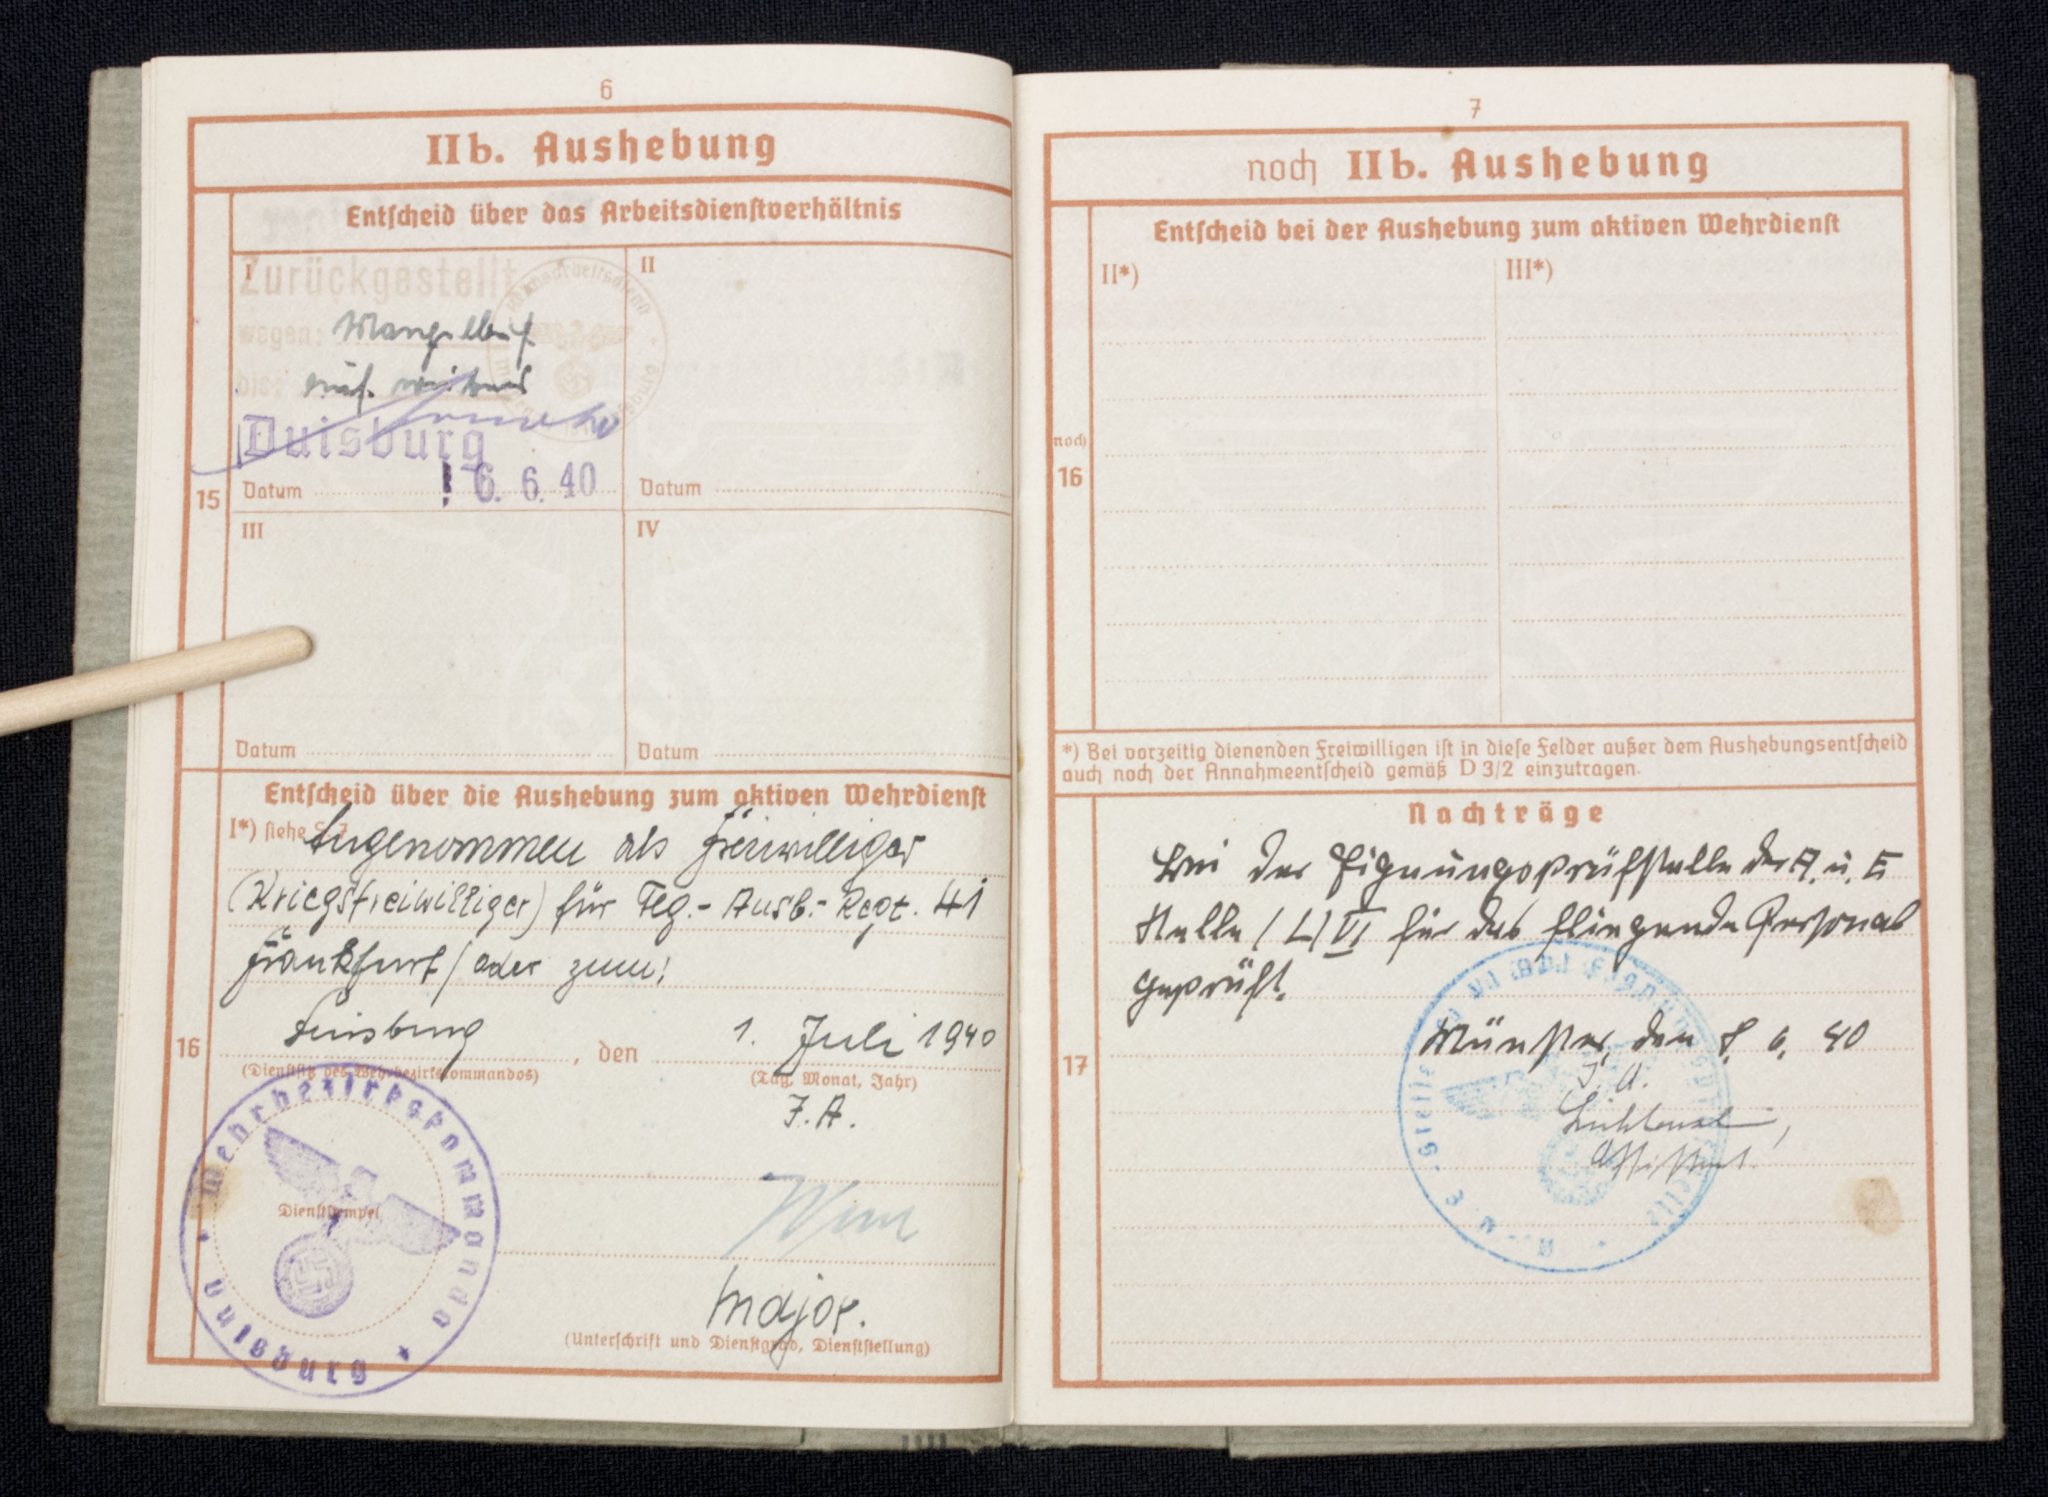 6
IIb. Aushebung
Entscheid über das Arbeitsdienstverhältnis
I
Zurückgestellt
wegen: Mangelber.
bis: auf weiteres
Duisburg
Datum 6. 6. 40
II
Datum
15
III
Datum
IV
Datum
Entscheid über die Aushebung zum aktiven Wehrdienst
I*) siehe S. 7
Angenommen als Freiwilliger
(Kriegsfreiwilliger) für Flg.-Ausb.-Regt. 41
Frankfurt/oder zum:
Duisburg, den 1. Juli 1940
(Dienstsitz des Wehrbezirkskommandos) (Tag, Monat, Jahr)
16
I.A.
Wehrbezirkskommando Duisburg
Dienststempel
Major.
(Unterschrift und Dienstgrad, Dienststellung)
7
noch IIb. Aushebung
Entscheid bei der Aushebung zum aktiven Wehrdienst
II*)
III*)
noch
16
*) Bei vorzeitig dienenden Freiwilligen ist in diese Felder außer dem Aushebungsentscheid
auch noch der Annahmeentscheid gemäß D 3/2 einzutragen.
Nachträge
Bei der Eignungsprüfstelle der A. u. E
Stelle (L) VI für das fliegende Personal
geprüft.
Münster, den 8. 6. 40
17
I. A.
Assistent.